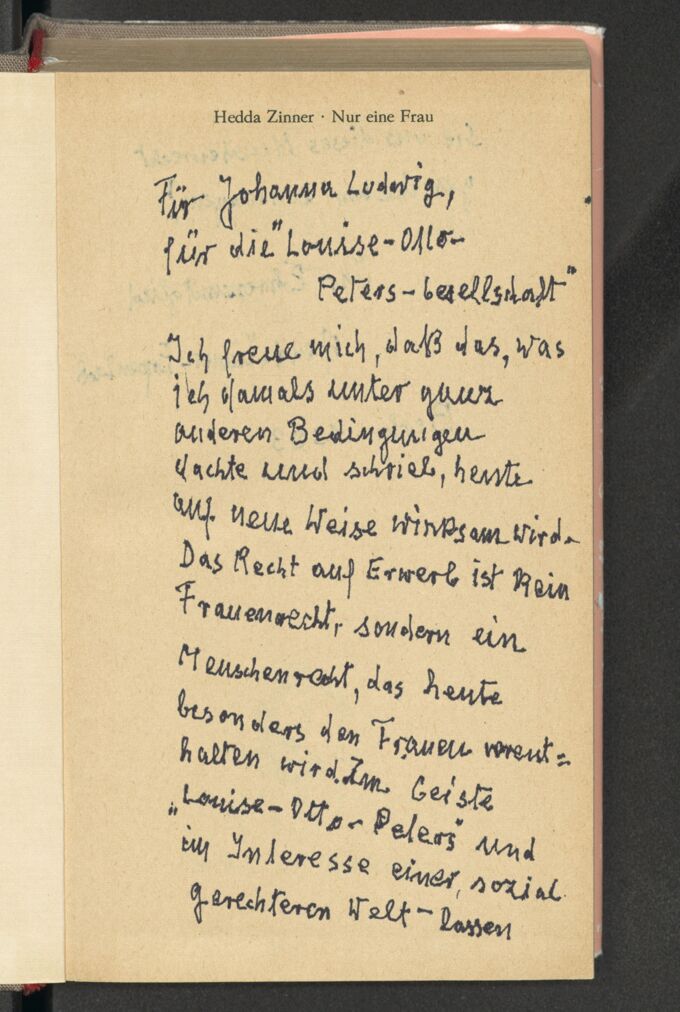 Hedda Zinner · Nur eine Frau
Für Johanna Ludwig,
für die "Louise-Otto-
Peters-Gesellschaft"
Ich freue mich, daß das, was
ich damals unter ganz
anderen Bedingungen
dachte und schrieb, heute
auf neue Weise wirksam wird.
Das Recht auf Erwerb ist kein
Frauenrecht, sondern ein
Menschenrecht, das heute
besonders den Frauen vorent=
halten wird. Im Geiste
„Louise-Otto-Peters" und
im Interesse einer, sozial
gerechteren Welt – lassen